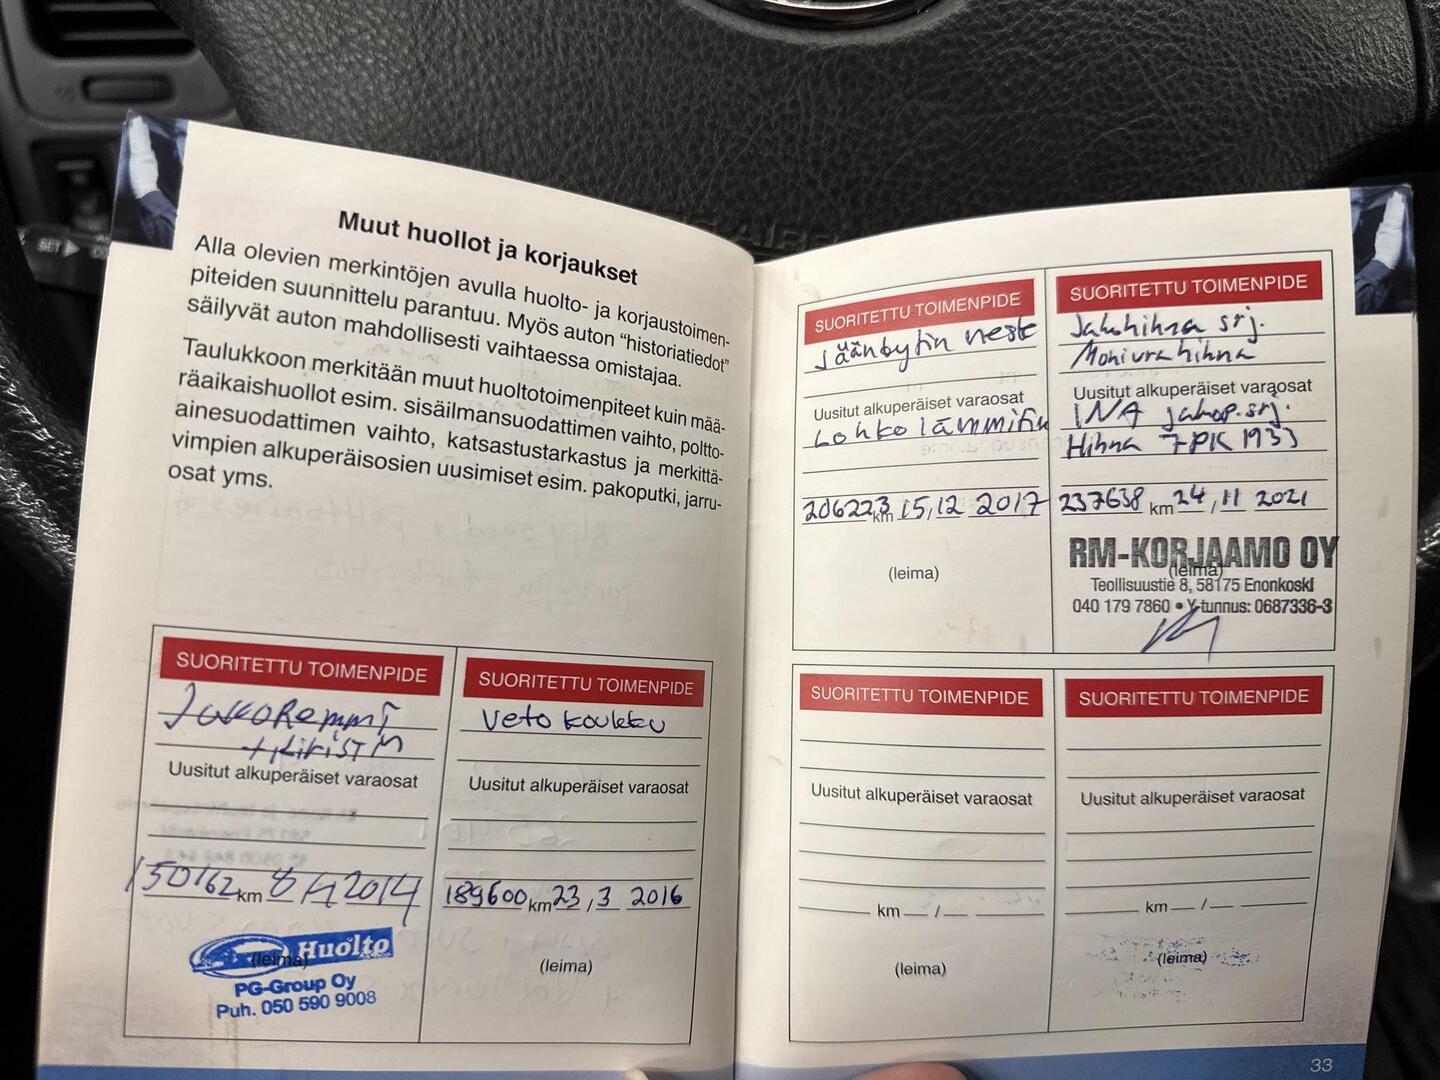 Muut huollot ja korjaukset
Alla olevien merkintöjen avulla huolto- ja korjaustoimen-
piteiden suunnittelu parantuu. Myös auton "historiatiedot"
säilyvät auton mahdollisesti vaihtaessa omistajaa.
Taulukkoon merkitään muut huoltotoimenpiteet kuin mää-
räaikaishuollot esim. sisäilmansuodattimen vaihto, poltto-
ainesuodattimen vaihto, katsastustarkastus ja merkittä-
vimpien alkuperäisosien uusimiset esim. pakoputki, jarru-
osat yms.
SUORITETTU TOIMENPIDE
Jakoremmi
+kiristin
Uusitut alkuperäiset varaosat
150162 km 8 /1 2014
Huolto
(leima)
PG-Group Oy
Puh. 050 590 9008
SUORITETTU TOIMENPIDE
Veto koukku
Uusitut alkuperäiset varaosat
189600 km 23,3 2016
(leima)
SUORITETTU TOIMENPIDE
Jäänbytin neste
Uusitut alkuperäiset varaosat
Lohkolämmitin
206223 km 15,12 2017
(leima)
SUORITETTU TOIMENPIDE
Jakohihna srj.
Moniurahihna
Uusitut alkuperäiset varaosat
INA jakop.srj.
Hihna 7PK 1933
237638 km 24,11 2021
RM-KORJAAMO OY
(leima)
Teollisuustie 8, 58175 Enonkoski
040 179 7860 • Y-tunnus: 0687336-3
SUORITETTU TOIMENPIDE
Uusitut alkuperäiset varaosat
km /
(leima)
SUORITETTU TOIMENPIDE
Uusitut alkuperäiset varaosat
km /
(leima)
33
SET